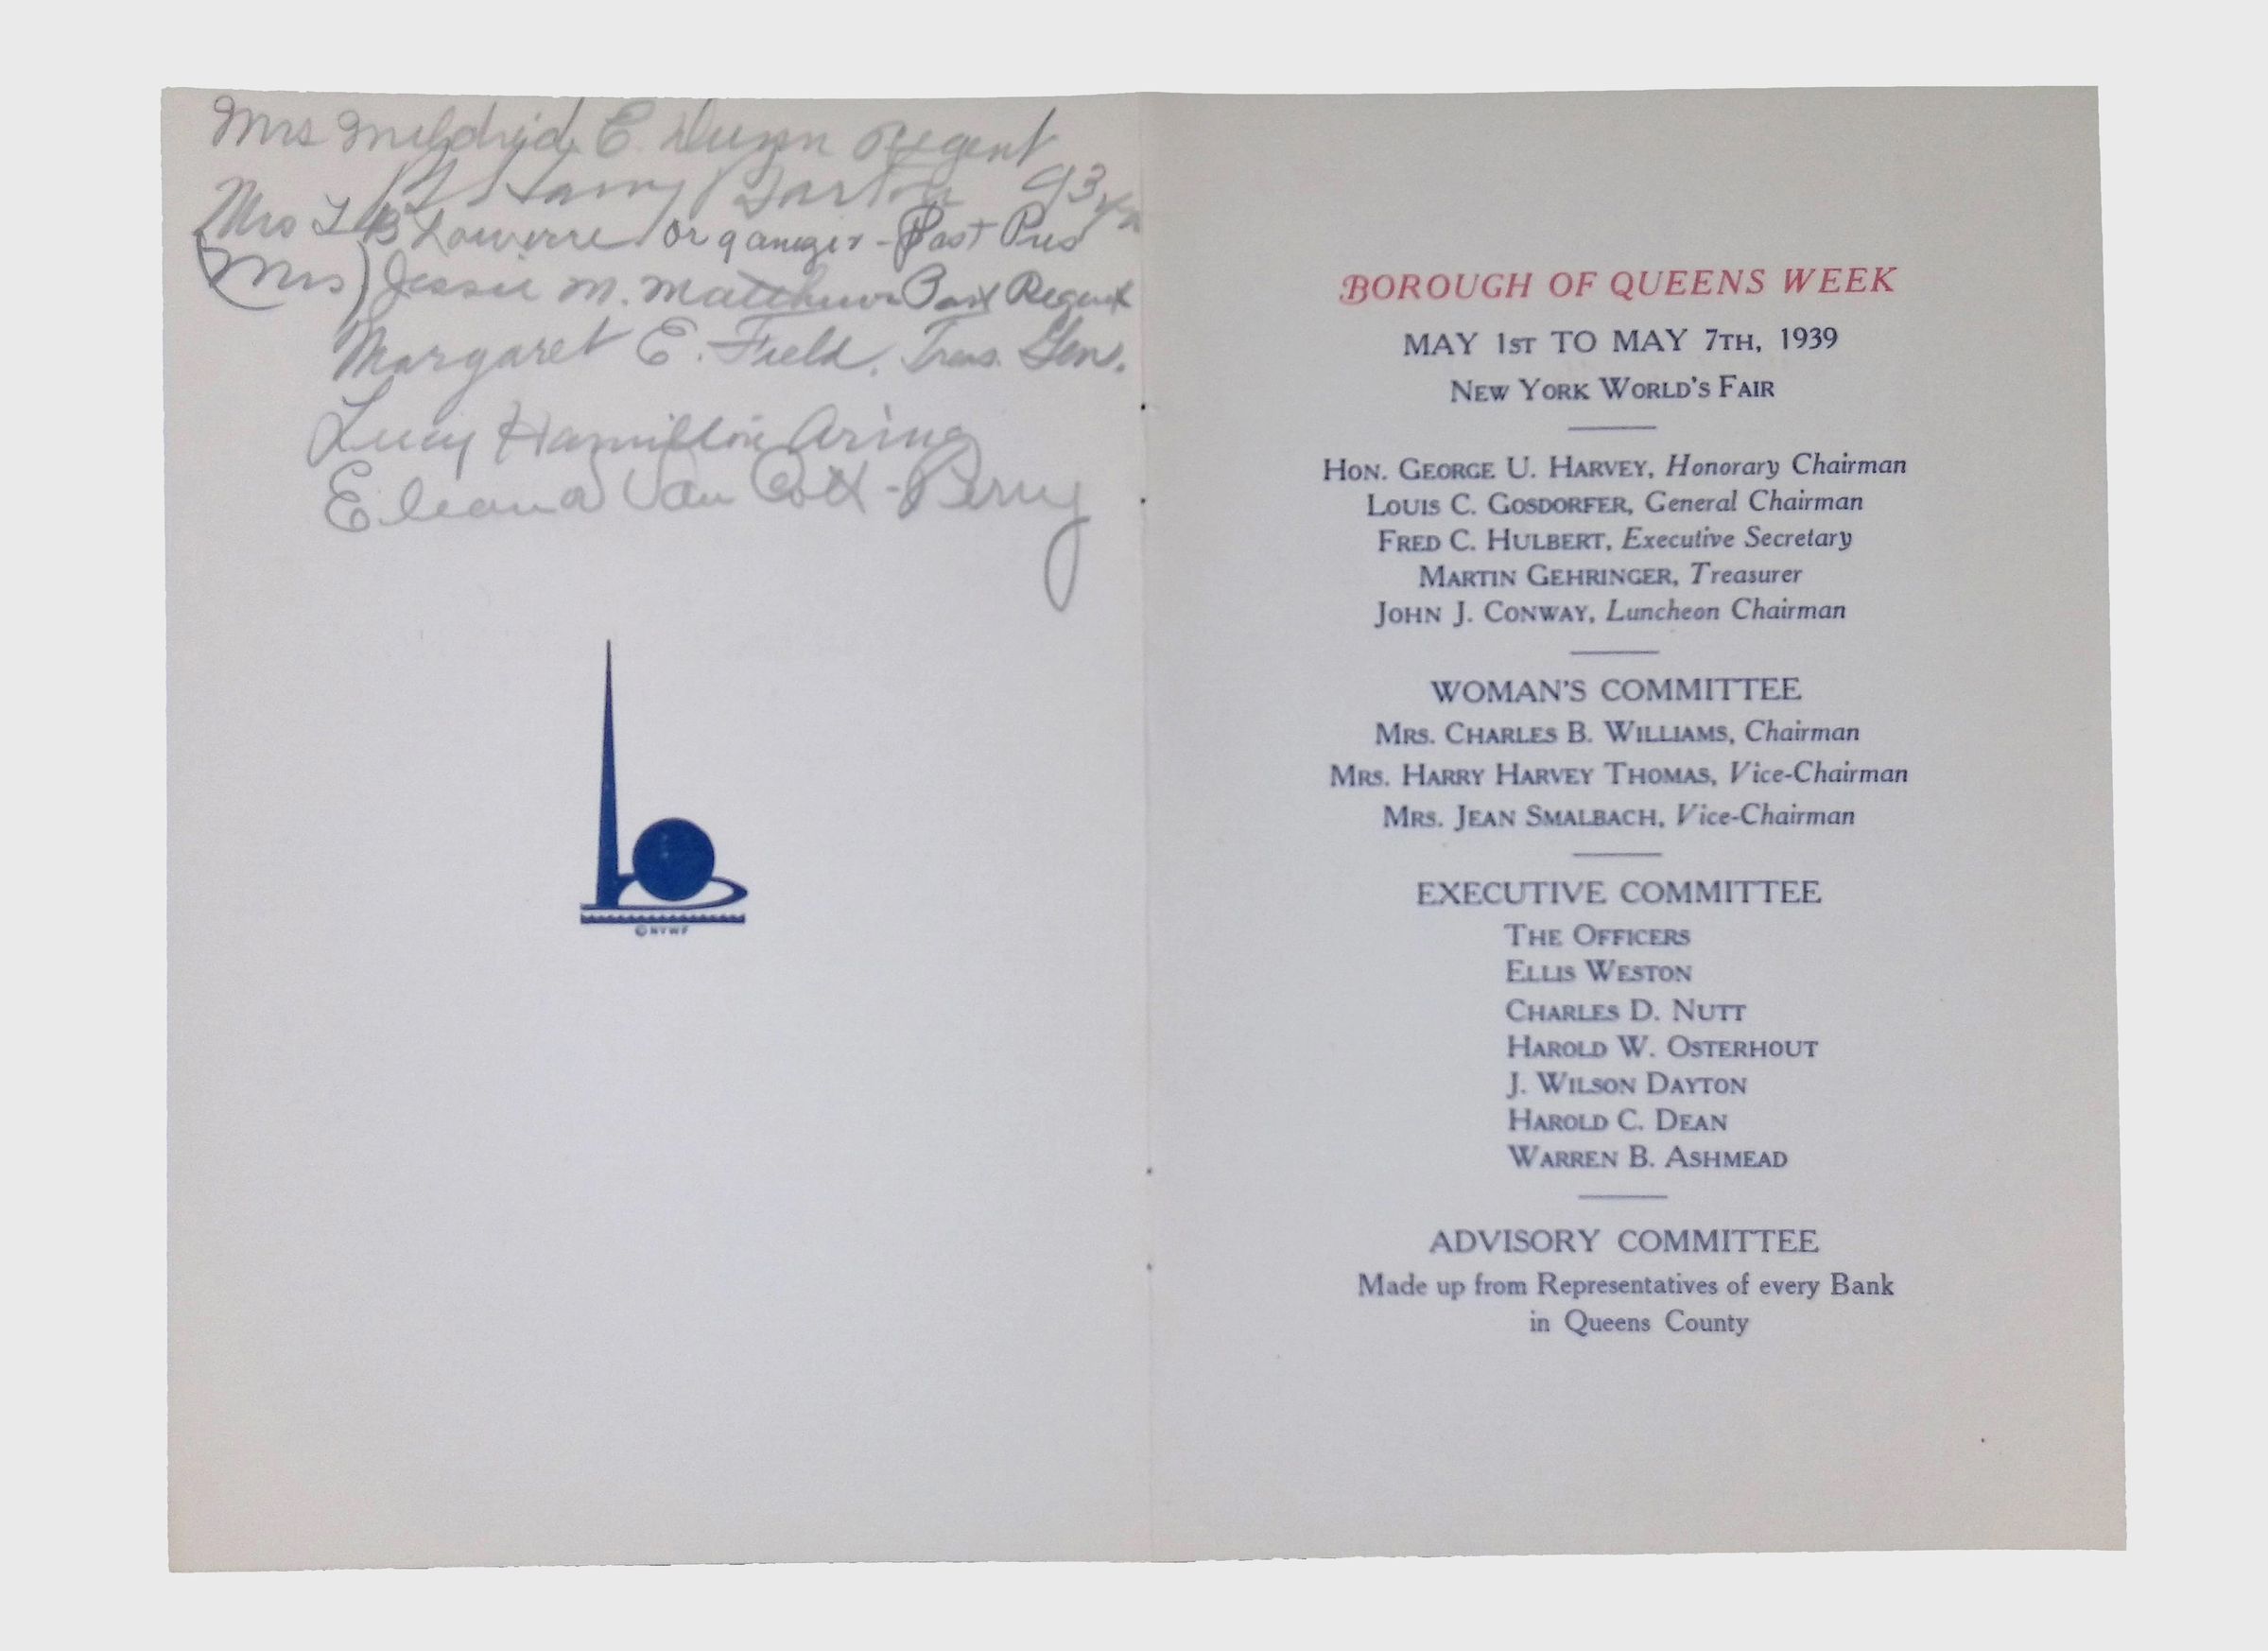 Mrs Mildred E. Dunn Regent
Harry Barton 93 yrs
Mrs L B Lowerre Organizer - Past Pres
(Mrs) Jessie M. Matthews Past Regent
Margaret E. Field, Treas. Gen.
Lucy Hamilton Aring
Eleanor Van Cott - Perry
©NYWF
BOROUGH OF QUEENS WEEK
MAY 1ST TO MAY 7TH, 1939
NEW YORK WORLD'S FAIR
HON. GEORGE U. HARVEY, Honorary Chairman
LOUIS C. GOSDORFER, General Chairman
FRED C. HULBERT, Executive Secretary
MARTIN GEHRINGER, Treasurer
JOHN J. CONWAY, Luncheon Chairman
WOMAN'S COMMITTEE
MRS. CHARLES B. WILLIAMS, Chairman
MRS. HARRY HARVEY THOMAS, Vice-Chairman
MRS. JEAN SMALBACH, Vice-Chairman
EXECUTIVE COMMITTEE
THE OFFICERS
ELLIS WESTON
CHARLES D. NUTT
HAROLD W. OSTERHOUT
J. WILSON DAYTON
HAROLD C. DEAN
WARREN B. ASHMEAD
ADVISORY COMMITTEE
Made up from Representatives of every Bank
in Queens County